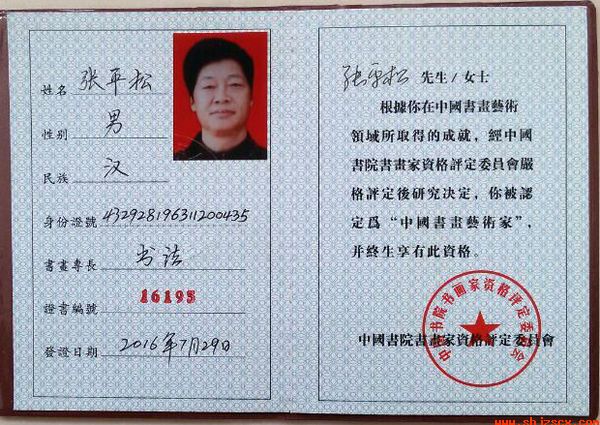 姓名 张平松
性别 男
民族 汉
身份證號 432928196311200435
書畫專長 书法
證書編號 16195
發證日期 2016年7月29日
张平松 先生/女士
根據你在中國書畫藝術
領域所取得的成就，經中國
書院書畫家資格評定委員會嚴
格評定後研究決定，你被認
定爲“中國書畫藝術家”，
并終生享有此資格。
中国书院书画家资格评定委员会
中國書院書畫家資格評定委員會
www.shjzscx.com